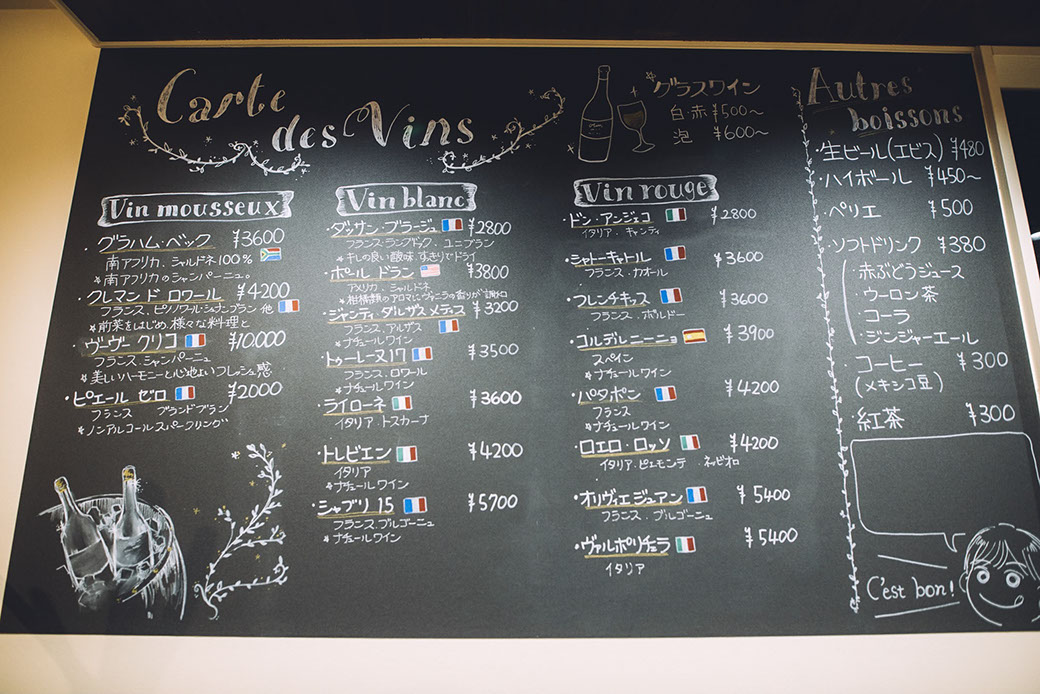 Carte
des Vins
Vin mousseux
・グラハム・ベック ¥3600
南アフリカ、シャルドネ100%
*南アフリカのシャンパーニュ。
・クレマン ド ロワール ¥4200
フランス、ピノノワール・シュナンブラン 他
*前菜をはじめ、様々な料理と
・ヴーヴ クリコ ¥10,000
フランス、シャンパーニュ
*美しいハーモニーと心地よいフレッシュ感
・ピエール ゼロ ¥2000
フランス ブランドブラン
*ノンアルコールスパークリング
Vin blanc
・ダッサン・ブラージュ ¥2800
フランス・ラングドック、ユニブラン
*キレの良い酸味、すっきりでドライ
・ポール ドラン ¥3800
アメリカ、シャルドネ
*柑橘類のアロマにヴァニラの香りが調和
・ジャンティ・ダルザス メティス ¥3200
フランス、アルザス
*ナチュールワイン
・トゥーレーヌ17 ¥3500
フランス、ロワール
*ナチュールワイン
・ライローネ ¥3600
イタリア・トスカーナ
・トレビエン ¥4200
イタリア
*ナチュールワイン
・シャブリ 15 ¥5700
フランス、ブルゴーニュ
*ナチュールワイン
グラスワイン
白・赤 ¥500~
泡 ¥600~
Vin rouge
・ドン・アンジェコ ¥2800
イタリア、キャンティ
・シャトーキャトル ¥3600
フランス・カオール
・フレンチキッス ¥3600
フランス、ボルドー
・コルデルニーニョ ¥3900
スペイン
*ナチュールワイン
・パタポン ¥4200
フランス
*ナチュールワイン
・ロエロ・ロッソ ¥4200
イタリア・ピエモンテ・ネッビオロ
・オリヴィエ ジュアン ¥5400
フランス・ブルゴーニュ
・ヴァルポリチェラ ¥5400
イタリア
Autres
boissons
・生ビール(エビス) ¥480
・ハイボール ¥450~
・ペリエ ¥500
・ソフトドリンク ¥380
・赤ぶどうジュース
・ウーロン茶
・コーラ
・ジンジャーエール
・コーヒー ¥300
(メキシコ豆)
・紅茶 ¥300
C'est bon!